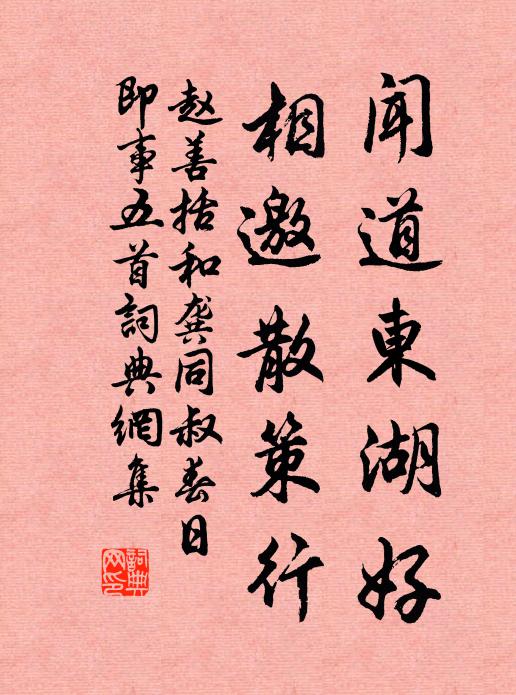 聞道東湖好
相邀散策行
赵善括和龚同叔春日
即事五首詞典網集
詞典网印